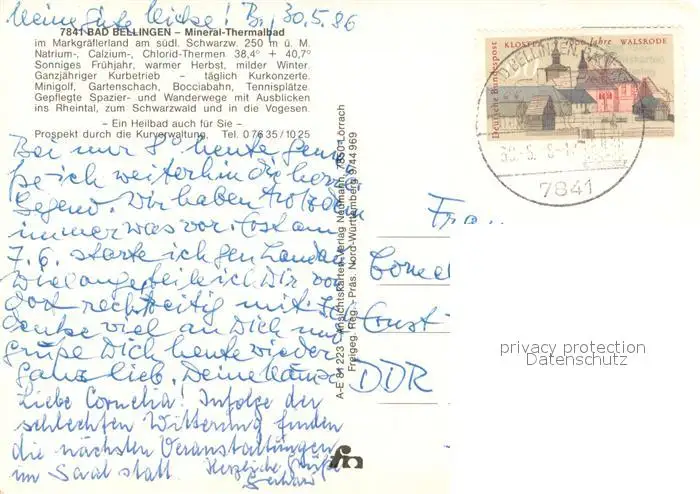 Meine Gute Micke! B., 30.5.86
7841 BAD BELLINGEN – Mineral-Thermalbad
im Markgräflerland am südl. Schwarzw. 250 m ü. M.
Natrium-, Calzium-, Chlorid-Thermen 38,4° + 40,7°
Sonniges Frühjahr, warmer Herbst, milder Winter.
Ganzjähriger Kurbetrieb – täglich Kurkonzerte.
Minigolf, Gartenschach, Bocciabahn, Tennisplätze.
Gepflegte Spazier- und Wanderwege mit Ausblicken
ins Rheintal, zum Schwarzwald und in die Vogesen.
– Ein Heilbad auch für Sie –
Prospekt durch die Kurverwaltung, Tel. 0 76 35 / 10 25
Bei nur 8° heute genie
ße ich weiterhin die herrl.
Gegend. Wir haben trotzdem
immer was vor. Erst am
7.6. starte ich gen Landau
Dir von
dort rechtzeitig mit. Ich
denke viel an Dich und
grüße Dich heute wieder
ganz lieb. Deine
Liebe Cornelia! Infolge der
schlechten Witterung finden
die nächsten Veranstaltungen
im Saal statt. Herzliche Grüße
Gerhard
A-E 81 223 – Ansichtskarten-Verlag Neumann, 7850 Lörrach
Freigeg. Reg.-Präs. Nord-Württemberg 9/44 969
fn
Deutsche Bundespost
KLOSTER Jahre WALSRODE
BAD BELLINGEN
7841
Frau
Corne
Ernst
DDR
privacy protection
Datenschutz